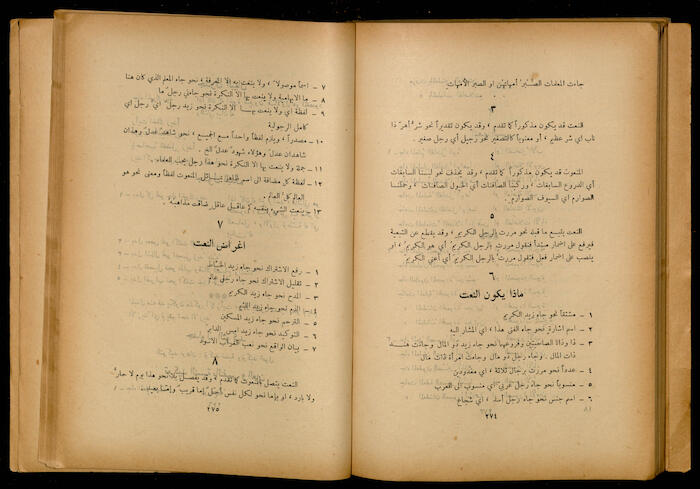 جاءت المعلمات الصُبُر أمهاتهن او الصبر الأمهات
٣
النعت قد يكون مذكوراً كما تقدم ، وقد يكون تقديراً نحو شر أهر ذا
ناب اي شر عظيم ، أو معنوياً كالتصغير نحو رجيل أي رجل صغير .
٤
المنعوت قد يكون مذكوراً كما تقدم ، وقد يحذف نحو لبسنا السابغات
أي الدروع السابغات ، وركبنا الصافنات أي الخيول الصافنات ، وحملنا
الصوارم اي السيوف الصوارم .
٥
النعت يتبع ما قبله نحو مررت بالرجل الكريم ، وقد يقطع عن التبعية
فيرفع على اضمار مبتدأ فتقول مررت بالرجل الكريمُ أي هو الكريم ، او
ينصب على اضمار فعل فتقول مررت بالرجل الكريمَ أي أعني الكريم
٦
ماذا يكون النعت
١ – مشتقاً نحو جاء زيد الكريم
٢ – اسم اشارة نحو جاء الفتى هذا ، اي المشار اليه
٣ – ذا وذات الصاحبيتين وفروعهما نحو جاء زيد ذو المال وجاءت هند
ذات المال . وجاء رجل ذو مال وجاءت امرأة ذات مال
٤ – عدداً نحو مررت برجال ثلاثة ، اي معدودين
٥ – منسوباً نحو جاء رجل عربي اي منسوب الى العرب
٦ – اسم جنس نحو جاء رجل أسد ، اي شجاع
٢٧٤
١٨
٧ – اسماً موصولاً ، ولا ينعت به إلا المعرفة ، نحو جاء المعلم الذي كان هنا
٨ – ما الابهامية ولا ينعت بها الا النكرة نحو جاءني رجل ما
٩ – لفظة أي ولا ينعت بها الا النكرة نحو زيد رجل أي رجل اي
كامل الرجولية
١٠ – مصدراً ، ويلزم لفظاً واحداً مع الجميع ، نحو شاهد عدل وهذان
شاهدان عدل وهؤلاء شهود عدل الخ .
١١ – جملة ولا ينعت بها الا النكرة نحو هذا رجل يحب العلماء
١٢ – لفظة كل مضافة الى اسم ظاهر يماثل المنعوت لفظاً ومعنى نحو هو
العالم كل العالم .
١٣ – ينعت الشيء بنفسه كم عاقل عاقل ضاقت مذاهبه .
٧
اغراض النعت
١ – رفع الاشتراك نحو جاء زيد الخياط
٢ – تقليل الاشتراك نحو جاء رجل عالم
٣ – المدح نحو جاء زيد الكريم
الذم نحو جاء زيد
٥ – الترحم نحو جاء زيد المسكين
٦ – التوكيد نحو امس الدابر
٧ – بيان الواقع نحو نعب الغراب الاسود
٨
النعت يتصل بالمنعوت كما تقدم ، وقد يفصل بلا نحو هذا يوم لا حار
ولا بارد ، او بإما نحو لكل نفس أجل إما قريب وإما بعيد
٢٧٥